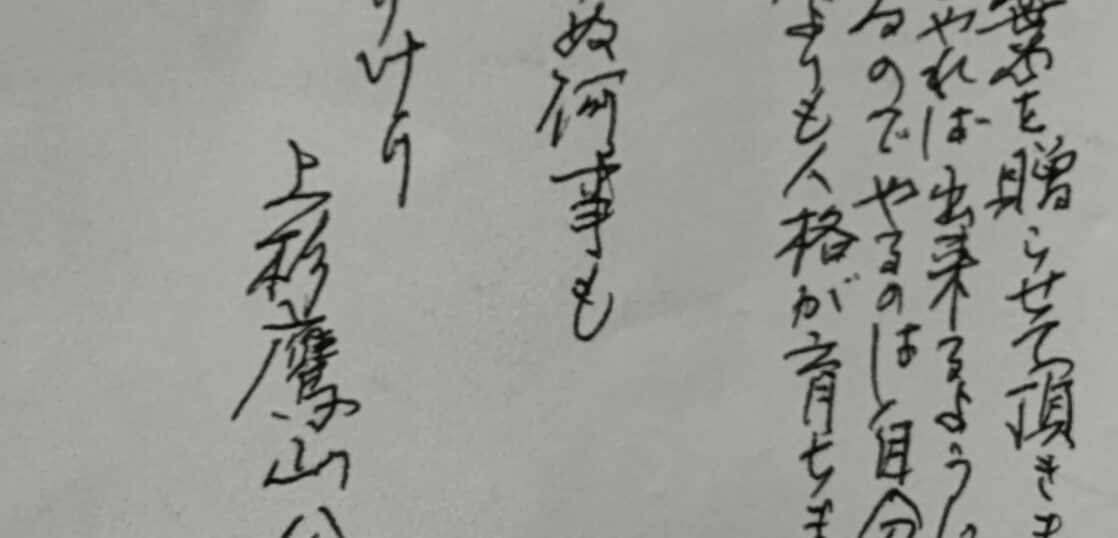 葉を贈らせて頂きま
やれば出来るよう
るのでやるのは、自分
よりも人格が育ちま
ぬ何事も
りけり
上杉鷹山公